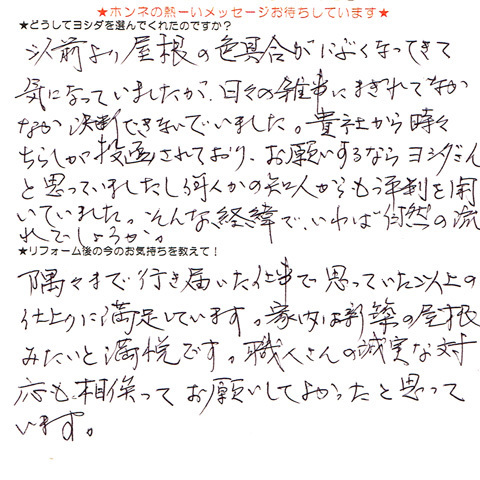 ★ホンネの熱ーいメッセージお待ちしています★
★どうしてヨシダを選んでくれたのですか？
以前より屋根の色具合がにぶくなってきて
気になっていましたが、日々の雑事にまぎれてなか
なか決断できないでいました。貴社から時々
ちらしが投函されており、お願いするならヨシダさん
と思っていましたし何人かの知人からもう評判を聞
いていました。そんな経緯で、いわば自然の流
れでしょうか。
★リフォーム後の今のお気持ちを教えて！
隅々まで行き届いた仕事で思っていた以上の
仕上りに満足しています。家内は新築の屋根
みたいと満悦です。職人さんの誠実な対
応も相俟ってお願いしてよかったと思って
います。